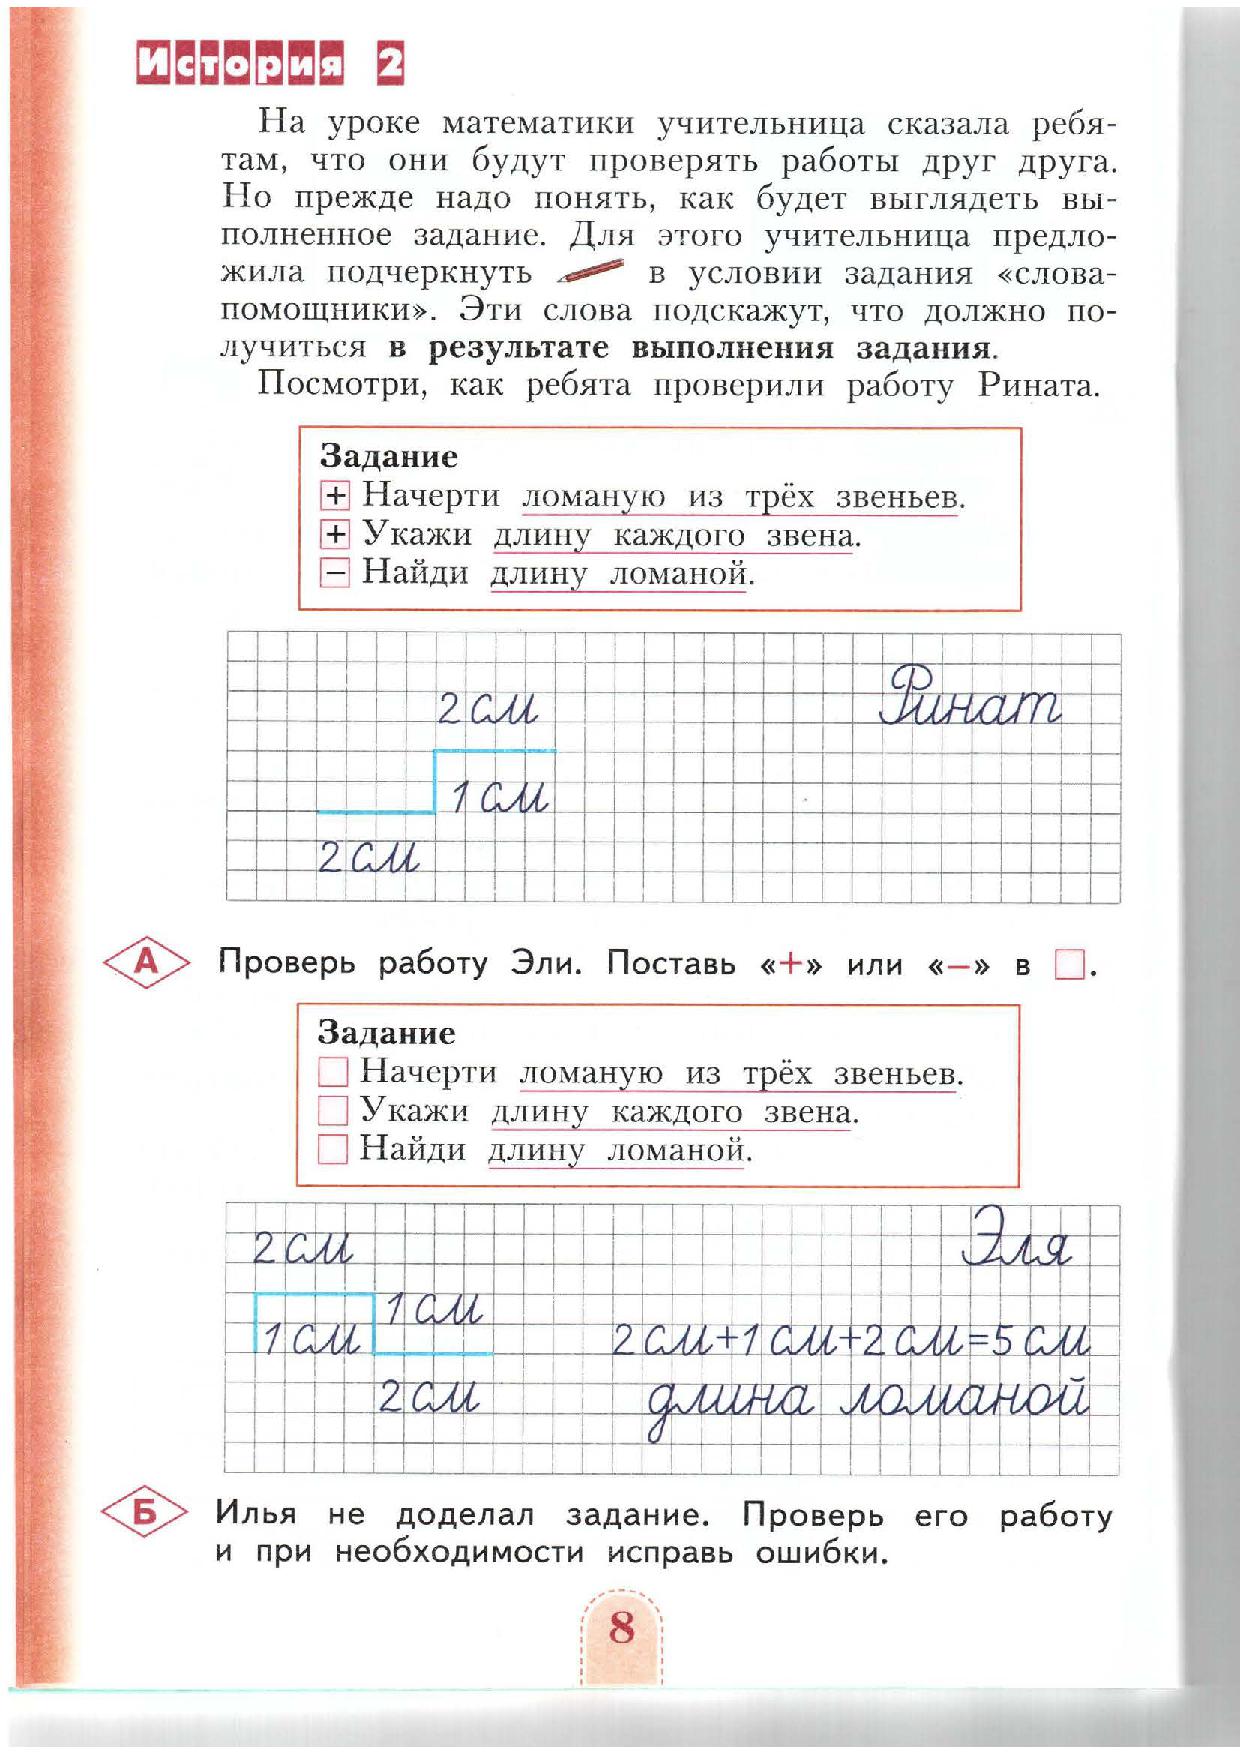 История 2
На уроке математики учительница сказала ребя-
там, что они будут проверять работы друг друга.
Но прежде надо понять, как будет выглядеть вы-
полненное задание. Для этого учительница предло-
жила подчеркнуть в условии задания «слова-
помощники». Эти слова подскажут, что должно по-
лучиться в результате выполнения задания.
Посмотри, как ребята проверили работу Рината.
Задание
+ Начерти ломаную из трёх звеньев.
+ Укажи длину каждого звена.
− Найди длину ломаной.
Ринат
2 см
1 см
2 см
А Проверь работу Эли. Поставь «+» или «−» в □.
Задание
□ Начерти ломаную из трёх звеньев.
□ Укажи длину каждого звена.
□ Найди длину ломаной.
Эля
2 см
1 см
1 см 2 см+1 см+2 см=5 см
2 см длина ломаной
Б Илья не доделал задание. Проверь его работу
и при необходимости исправь ошибки.
8